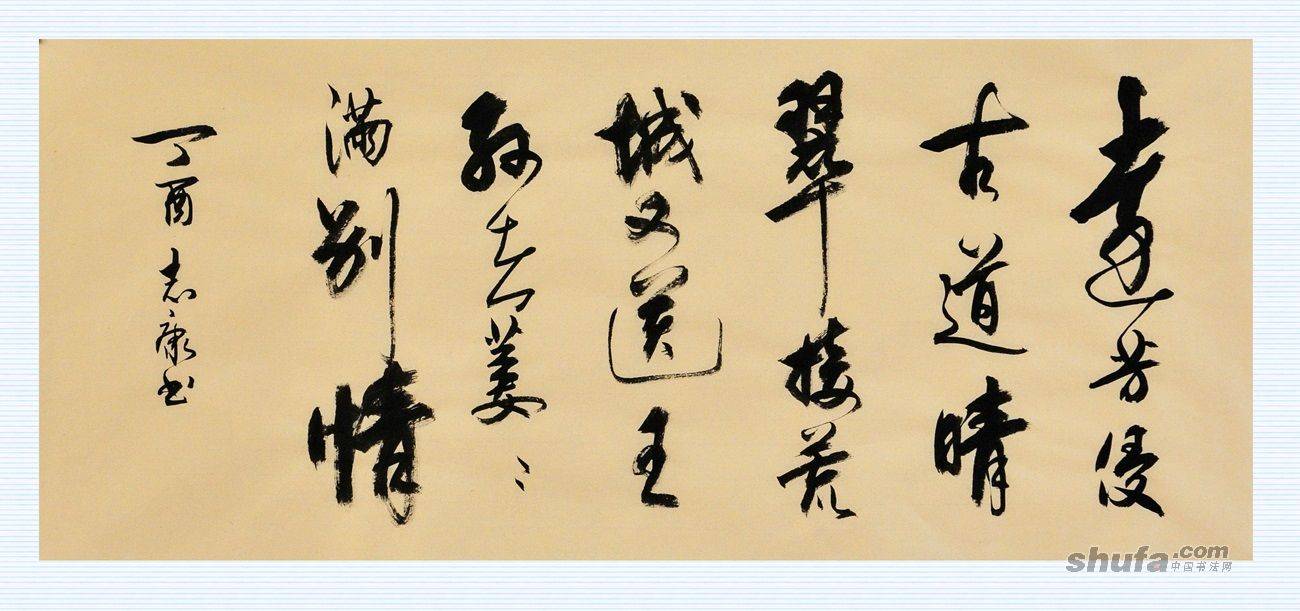 远芳侵
古道晴
翠接荒
城又送王
孙去萋
萋满别情
丁酉志康书
shufa.com
中国书法网